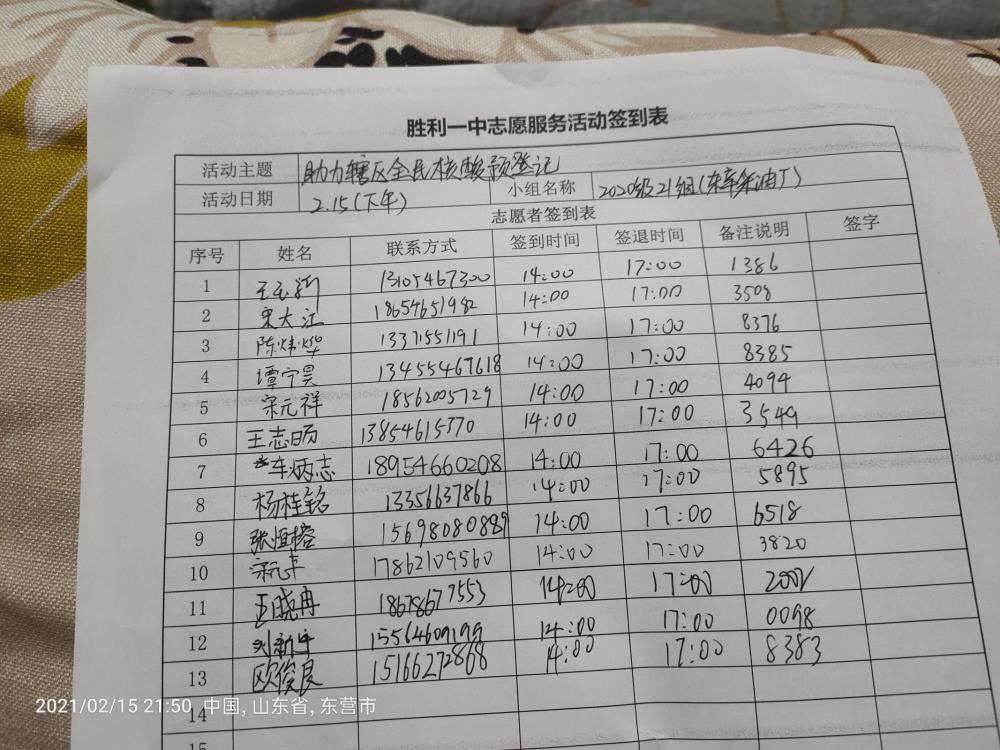 胜利一中志愿服务活动签到表
活动主题 助力辖区全民核酸预登记
活动日期 2.15(下午) 小组名称 2020级21组(东辛采油厂)
志愿者签到表
序号 姓名 联系方式 签到时间 签退时间 备注说明 签字
1 13105467300 14:00 17:00 1386
2 宋大江 18654651982 14:00 17:00 3508
3 陈炜烨 13371551191 14:00 17:00 8376
4 谭宁昊 13455467618 14:00 17:00 8385
5 宋元祥 18562005729 14:00 17:00 4094
6 王志旸 13854615370 14:00 17:00 3549
7 车炳志 18954660208 14:00 17:00 6426
8 杨桂铭 13356637866 14:00 17:00 5895
9 张恒榕 15698080889 14:00 17:00 6518
10 17862109560 14:00 17:00 3820
11 王晓冉 18678677553 14:00 17:00
12 15564609199 14:00 17:00 0098
13 欧俊良 15166272868 14:00 17:00 8383
14
15
2021/02/15 21:50 中国, 山东省, 东营市